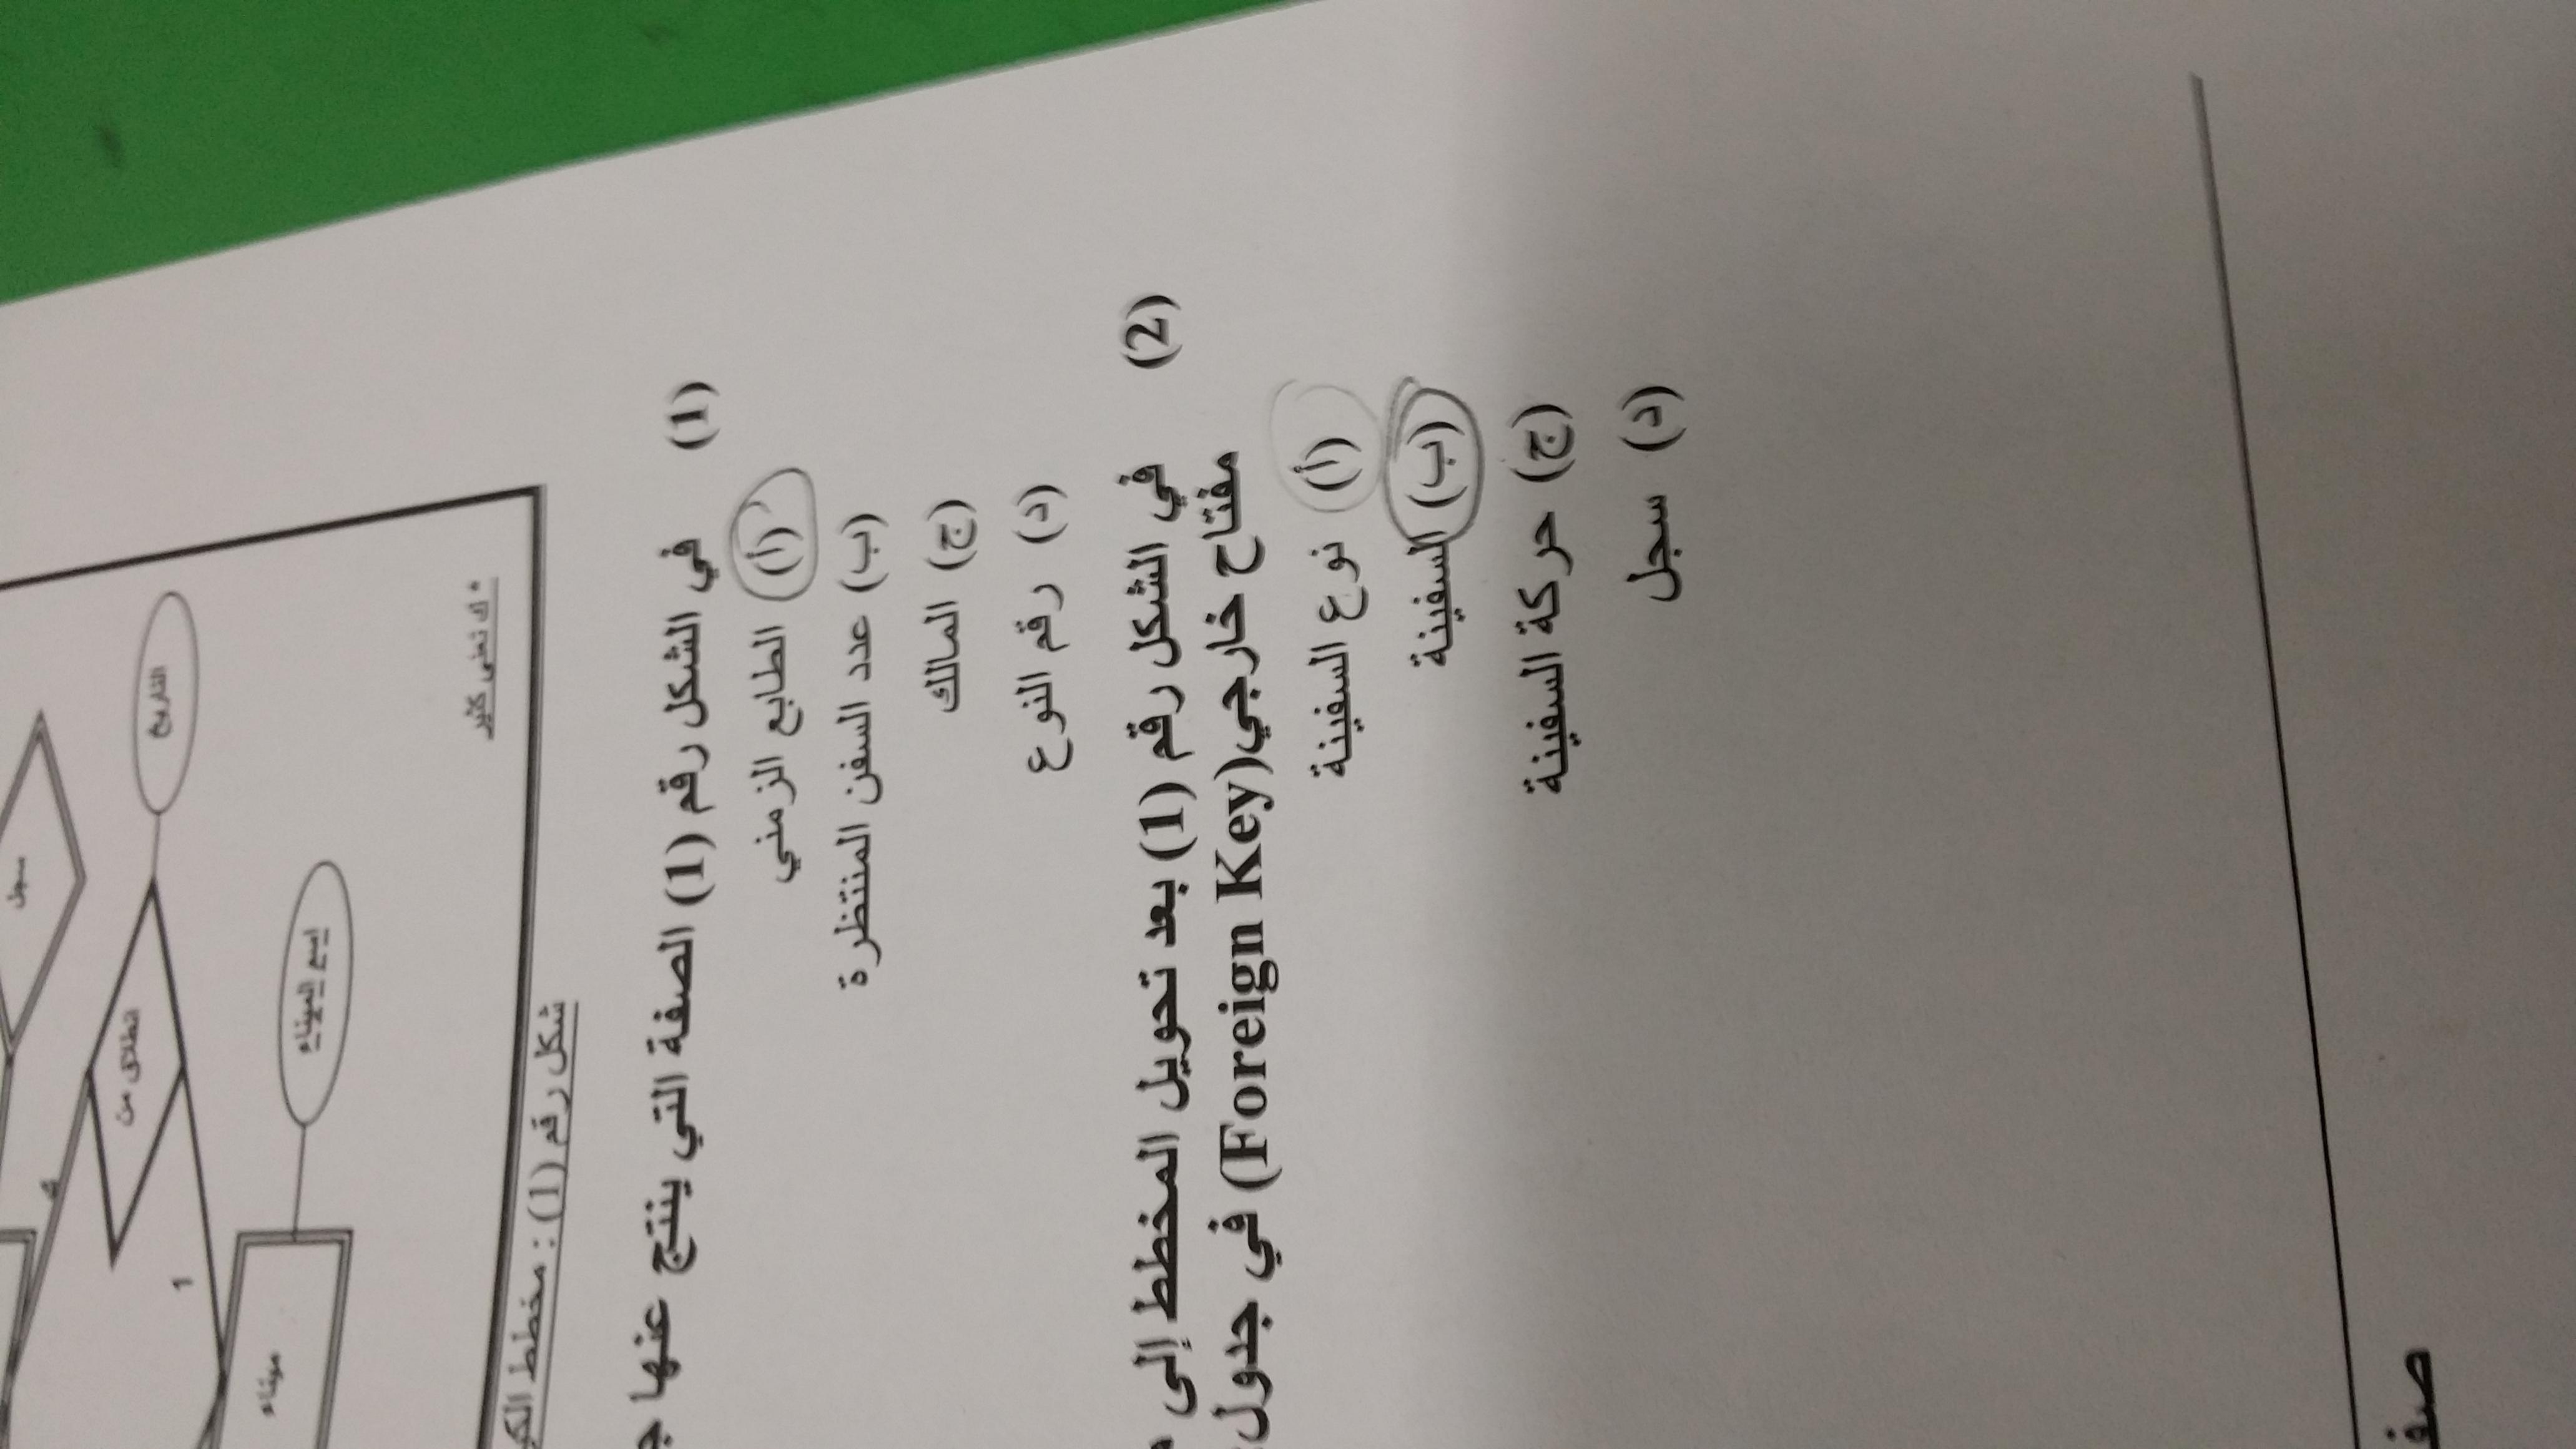 سجل
التاريخ
انطلاق من
ك
1
اسم الميناء
ميناء
* ك تعني كثير
شكل رقم (1) : مخطط
(1) في الشكل رقم (1) الصفة التي ينتج عنها
(أ) الطابع الزمني
(ب) عدد السفن المنتظرة
(ج) المالك
(د) رقم النوع
(2) في الشكل رقم (1) بعد تحويل المخطط إلى
مفتاح خارجي(Foreign Key) في جدول
(أ) نوع السفينة
(ب) السفينة
(ج) حركة السفينة
(د) سجل